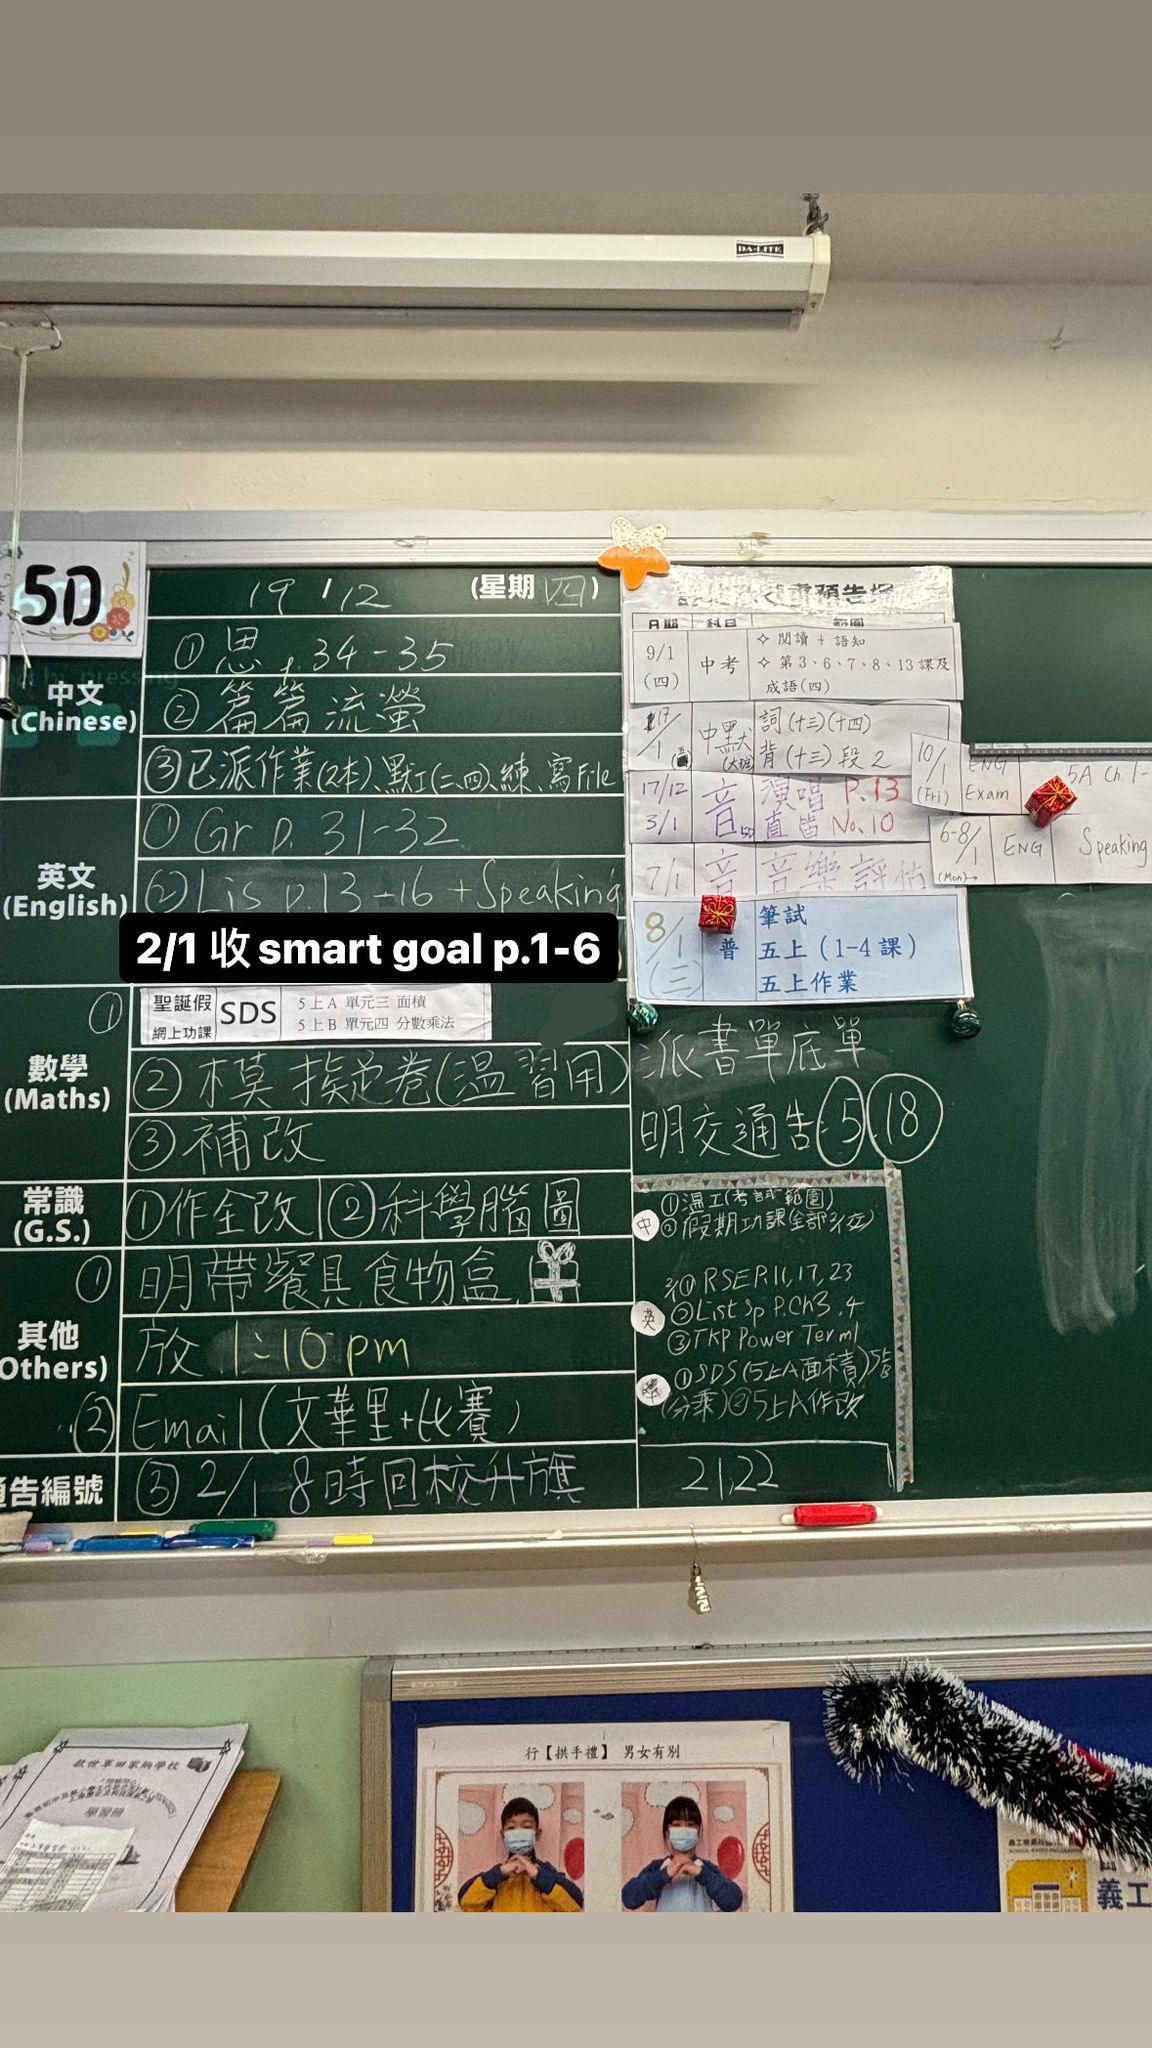 DA-LITE
5D
19/12 (星期四)
中文
(Chinese)
①思 p.34-35
②篇篇流螢
③已派作業(2本)、默工(二、四)、練、寫File
英文
(English)
①Gr p. 31-32
②Lis p.13-16 + Speaking
2/1 收 smart goal p.1-6
數學
(Maths)
① 聖誕假
網上功課
SDS
5上A 單元三 面積
5上B 單元四 分數乘法
②模擬卷(溫習用)
③補改
常識
(G.S.)
①作全改 ②科學腦圖
其他
(Others)
① 明帶餐具,食物盒,
放 1:10 pm
② Email (文華里+比賽)
通告編號
③ 2/1 8時回校升旗
預告
日期 科目 範圍
9/1
(四)
中考
閱讀 + 語知
第3、6、7、8、13課及
成語(四)
17/1
中默
詞(十三)(十四)
背(十三)段2
17/12
3/1
音5D
演唱 P.13
直笛 No.10
7/1 音 音樂評估
8/1
(三)
普
筆試
五上(1-4課)
五上作業
10/1
(Fri)
ENG
Exam
5A Ch.1-
6-8/1
(Mon)→
ENG
Speaking
派書單底單
明交通告:⑤,⑱
中
①溫工(考試範圍)
②假期功課全部
英
①RSE P.11,17,23
②List Sp P.Ch3.4
③TKP Power Term1
數
①SDS(5上A面積)5上B
(分乘)②5上A作改
21,22
行【拱手禮】 男女有別
救世軍田家炳學校
學習冊
義工